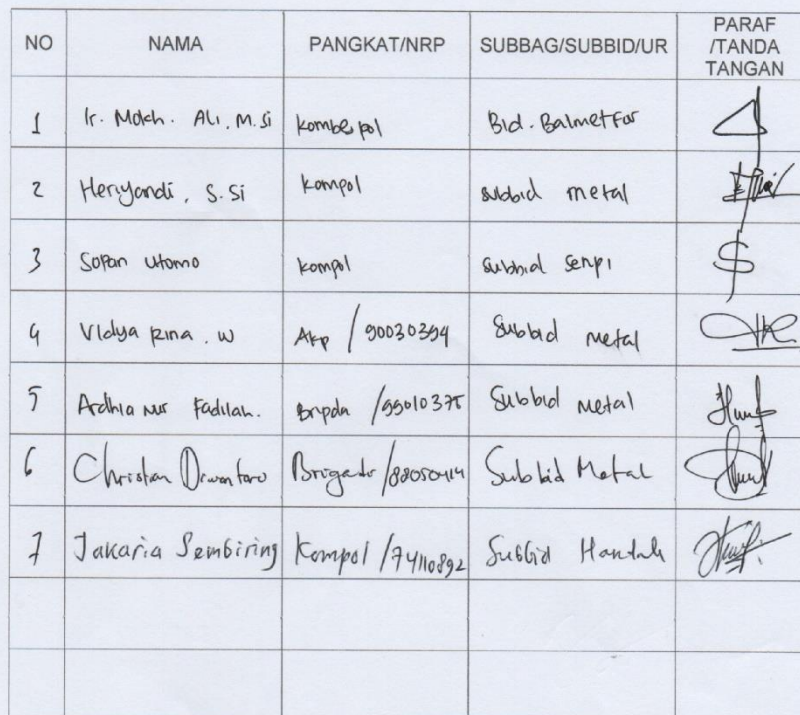 NO NAMA PANGKAT/NRP SUBBAG/SUBBID/UR PARAF
/TANDA
TANGAN
1 Ir. Mokh. Ali. M.Si Kombespol Bid. Balmetfor
2 Heriyandi, S.Si kompol subbid metal
3 Sopan utomo kompol subbid senpi
4 Vidya Rina. W Akp /90030394 Subbid metal
5 Ardhia Nur Fadilah. Bripda /99010375 Subbid Metal
6 Christian Brigadir /88050414 Subbid Metal
7 Jakaria Sembiring Kompol /74110892 Subbid